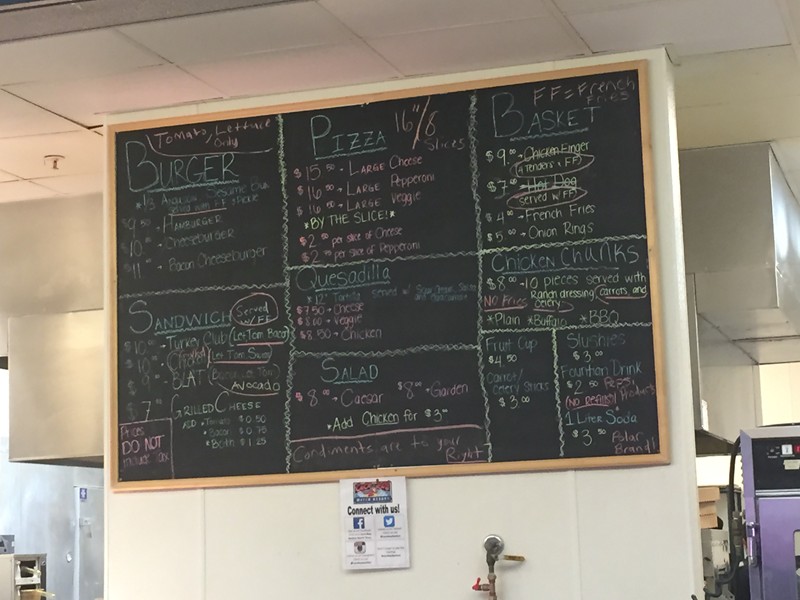 Tomato, Lettuce
Only
BURGER
served with FF
$9.50 HAMBURGER
$10 Cheeseburger
$11 Bacon Cheeseburger
SANDWICH
Served
w/FF
$10 Turkey Club (Let Tom Bacon)
Let Tom Swiss
$9 BLAT
AVOCADO
$7 GRILLED CHEESE
ADD Tomato $0.50
Bacon $0.75
*Both $1.25
Prices
DO NOT
include tax
PIZZA 16"/8
Slices
$15.50 - LARGE Cheese
$16 - LARGE Pepperoni
$16 - LARGE Veggie
*BY THE SLICE!*
$2 per slice of Cheese
$2 per slice of Pepperoni
Quesadilla
*12" Tortilla served w/
$7.50 - Cheese
$8.00 - Veggie
$8.50 - Chicken
SALAD
$8.00 - Caesar $8.00 - Garden
*Add Chicken for $3.00
Condiments are to your
Right
FF = French
Fries
BASKET
$9. Chicken Finger
4 Tenders + FF
$7. Hot Dog
served w/FF
$4. French Fries
$5. Onion Rings
CHICKEN CHUNKS
$8.00 - 10 pieces served with
Ranch dressing, carrots, and
celery
NO Fries
*Plain *Buffalo *BBQ
Fruit Cup
$4.50
Carrot/
Celery Sticks
$3.00
Slushies
$3.00
Fountain Drink
$2.50 Pepsi
(No refills) Products
1 Liter Soda
$3.50 Polar
Brand!
Connect with us!